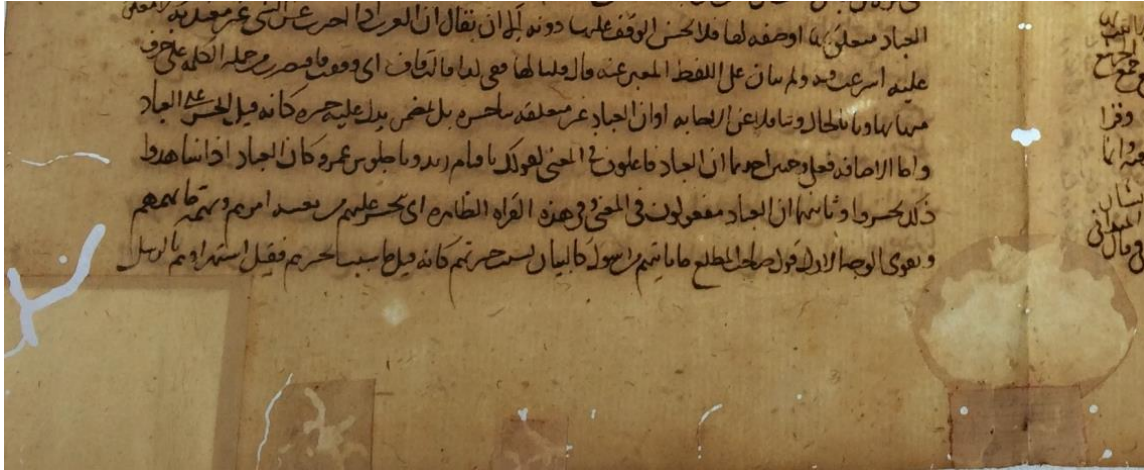 العباد متعلق بها او صفه لها فلا يحسن الوقف عليها دونه ان يقال ان العرب اذا اخبرت عن الشي غير معتمدته
عليه اسرعت فيه ولم تتان على اللفظ المعبر عنه قال وقلنا لها قفي لنا قالت قاف اي وقفت فاقتصرت من جملة الكلمة على حرف
منها تهاونا بالحال وتثاقلا عن الاجابه او ان العباد غير متعلقه بالحسره بل بمضمر يدل عليه حسره كانه قيل الحسره على العباد
واما الاضافه فعلى وجهين احدهما ان العباد فاعلون في المعنى كقولك يا قيام زيد ويا جلوس عمرو كان العباد اذا شاهدوا
ذلك تحسروا وثانيهما ان العباد مفعولون في المعنى وفي هذه القراه الظاهره اي يتحسر عليهم من يعنيه امرهم ويهمه ما يمسهم
ويقوي الوجه الاول قول صاحب المطلع ما ياتيهم من رسول كالبيان لسبب حسرتهم كانه قيل ما سبب تحسرهم فقيل استهزاوهم بالرسل